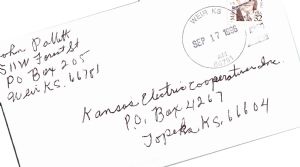 John Pallett
511 W Forest St
PO Box 205
Weir KS. 66781
WEIR KS
SEP 17 1996
AM
66781
32
Kansas Electric Cooperative Inc.
P.O. Box 4267
Topeka KS, 66604